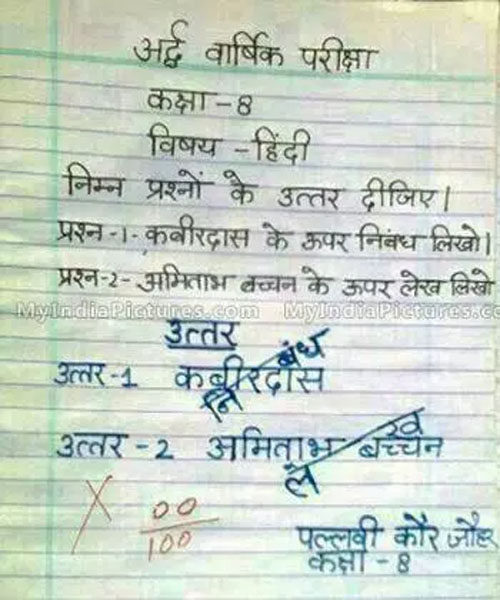 अर्द्ध वार्षिक परीक्षा
कक्षा - 8
विषय - हिंदी
निम्न प्रश्नों के उत्तर दीजिए।
प्रश्न-1- कबीरदास के ऊपर निबंध लिखो।
प्रश्न-2- अमिताभ बच्चन के ऊपर लेख लिखो
MyIndiaPictures.com MyIndiaPictures.co
उत्तर
उत्तर-1 कबीरदास
निबंध
उत्तर - 2 अमिताभ बच्चन
लेख
X 00
100
पल्लवी कौर जौहर
कक्षा - 8